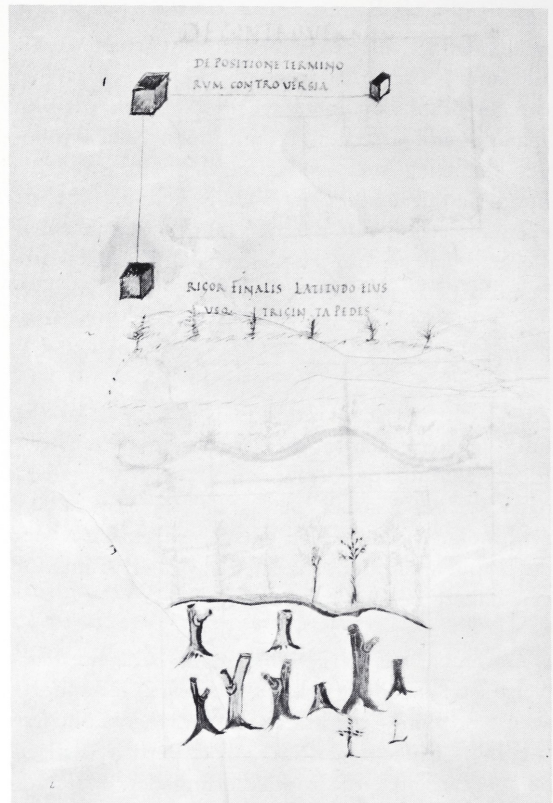 DE POSITIONE TERMINO
RUM CONTROVERSIA
RIGOR FINALIS LATITUDO EIUS
TRICIN TA PEDES